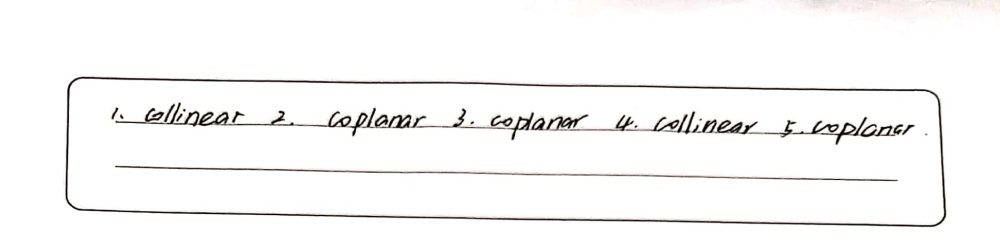 1. collinear 2. coplanar 3. coplanar 4. collinear 5. coplanar.